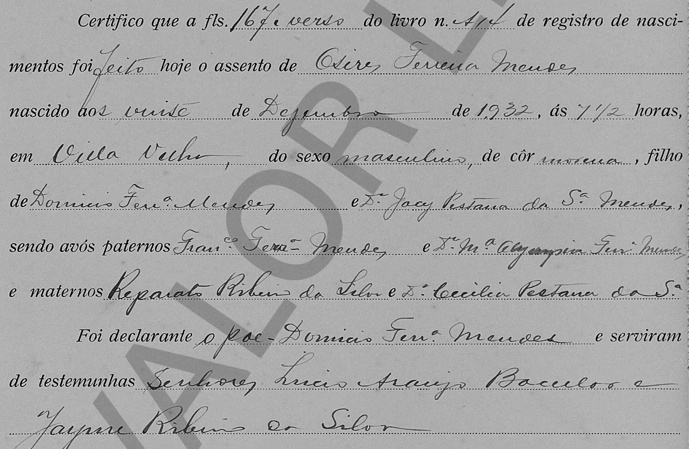 Certifico que a fls. 167 e verso do livro n. A14 de registro de nasci-
mentos foi feito hoje o assento de Osires Ferreira Mendes
nascido aos vinte de Dezembro de 1932, ás 7 1/2 horas,
em Villa Velha, do sexo masculino, de côr morena, filho
de Domicio Ferrª Mendes e Dª Jacy Pestana da Sª Mendes,
sendo avós paternos Franco Ferrª Mendes e Dª Mª Olympia Ferrª Mendes
e maternos Reparato Ribeiro da Silva e Dª Cecilia Pestana da Sª
Foi declarante o pae - Domicio Ferrª Mendes e serviram
de testemunhas Senhores Lucio Araujo Bacellar e
Jayme Ribeiro da Silva
VALOR